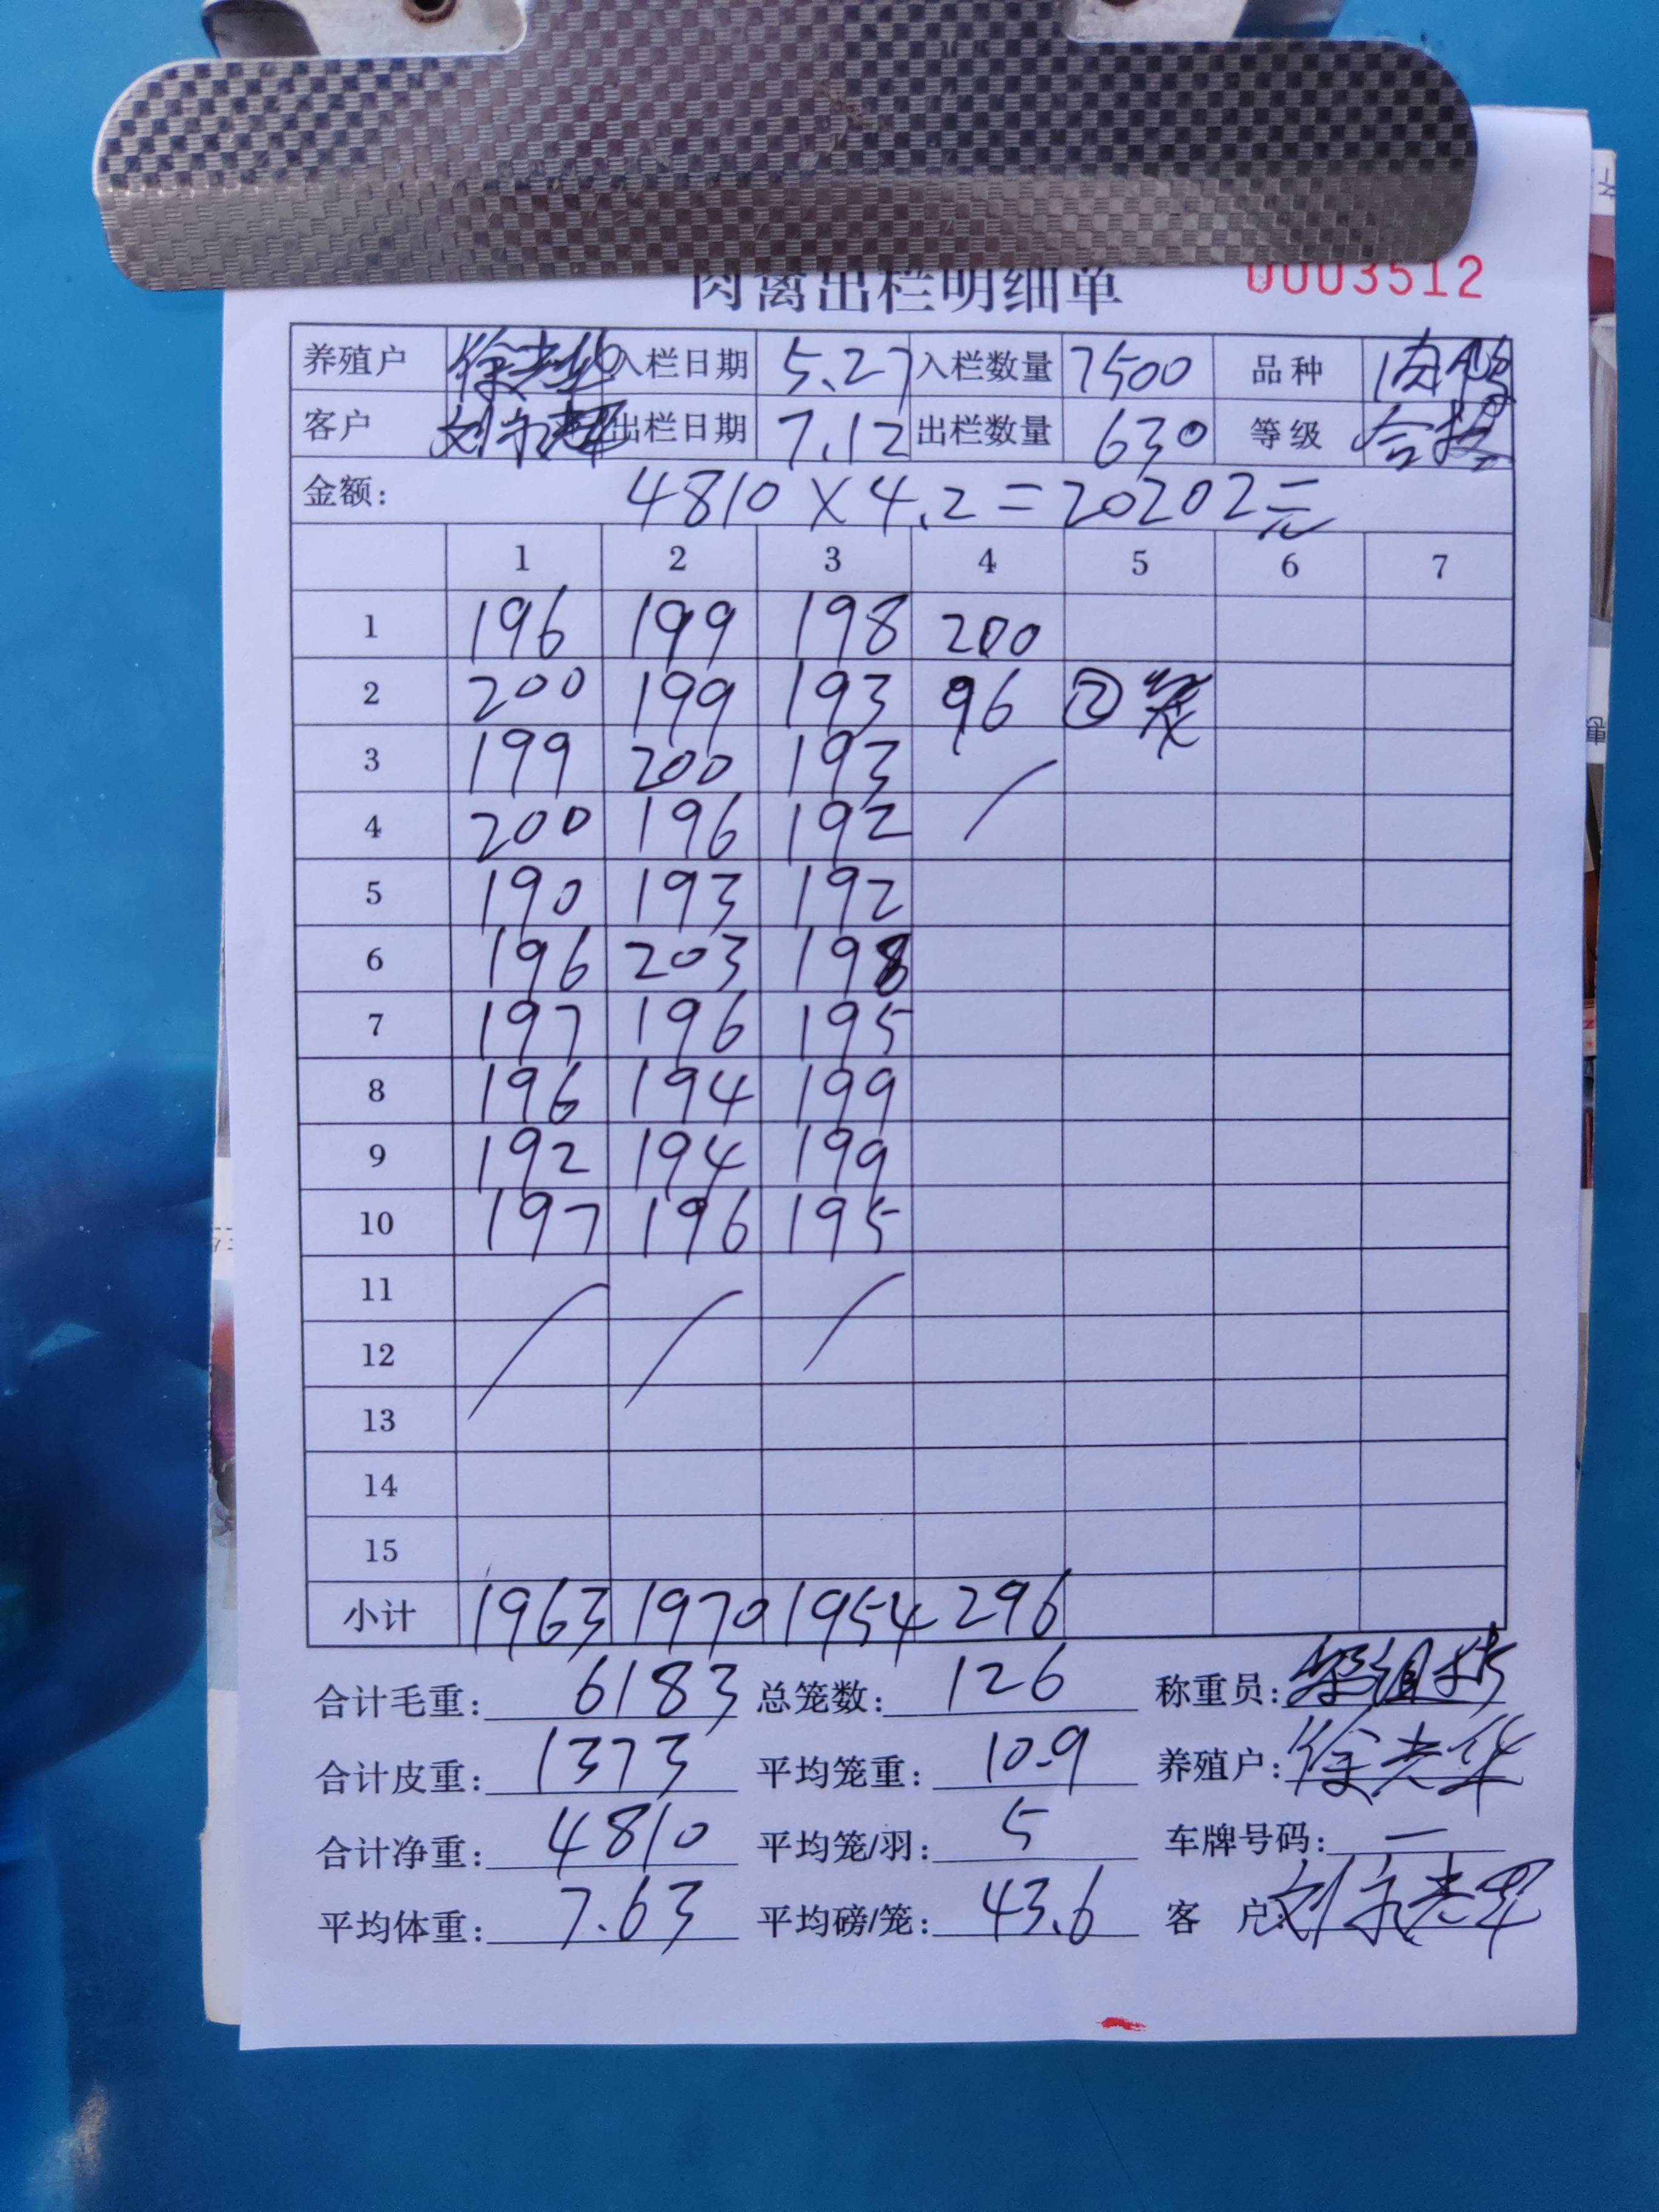 肉禽出栏明细单 0003512
养殖户 徐老华 入栏日期 5.27 入栏数量 7500 品种 肉鸭
客户 出栏日期 7.12 出栏数量 630 等级 合格
金额: 4810 X 4.2 = 20202元
1 2 3 4 5 6 7
1 196 199 198 200
2 200 199 193 96 ② 笼
3 199 200 193
4 200 196 192
5 190 193 192
6 196 203 198
7 197 196 195
8 196 194 199
9 192 194 199
10 197 196 195
11
12
13
14
15
小计 1963 1970 1954 296
合计毛重: 6183 总笼数: 126 称重员:
合计皮重: 1373 平均笼重: 10.9 养殖户: 徐老华
合计净重: 4810 平均笼/羽: 5 车牌号码: 一
平均体重: 7.63 平均磅/笼: 43.6 客 户: